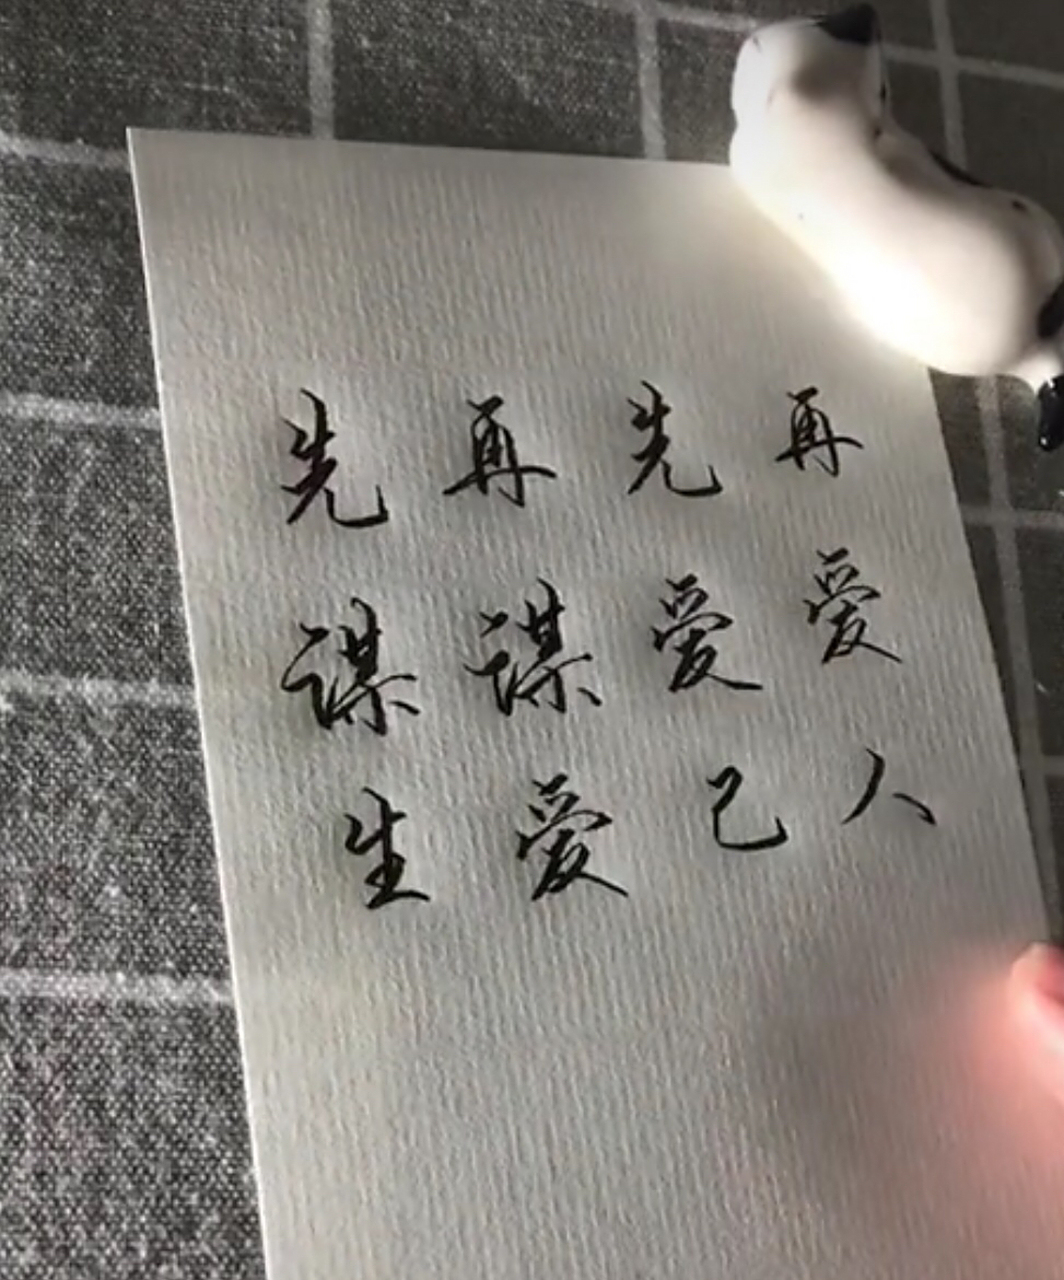 先谋生
再谋爱
先爱己
再爱人